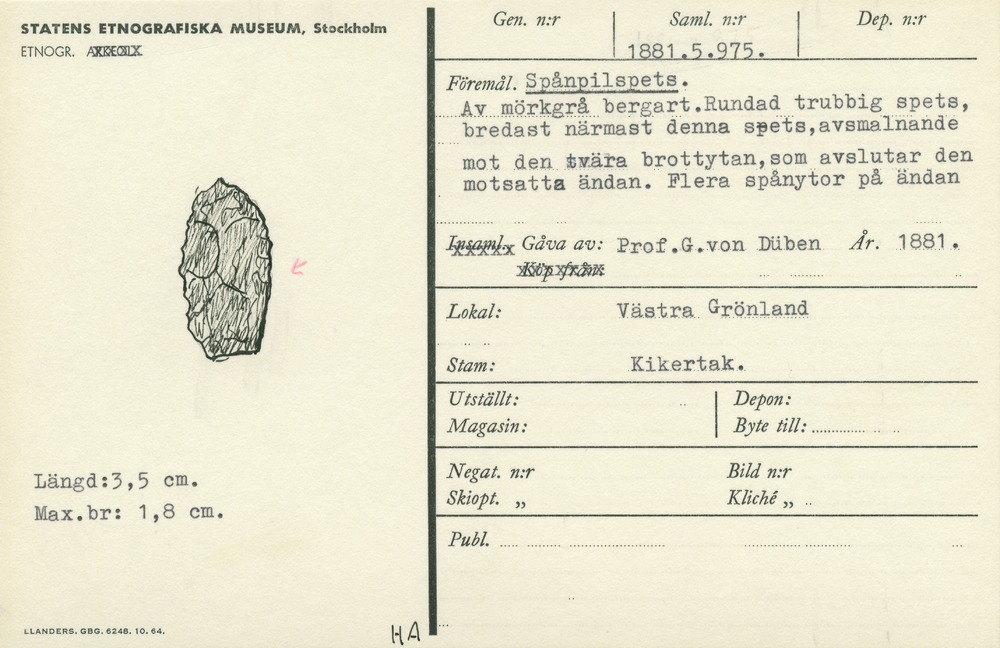 STATENS ETNOGRAFISKA MUSEUM, Stockholm
ETNOGR.
Längd:3,5 cm.
Max.br: 1,8 cm.
LLANDERS. GBG. 6248. 10. 64.
HA
Gen. n:r Saml. n:r Dep. n:r
1881.5.975.
Föremål. Spånpilspets.
Av mörkgrå bergart.Rundad trubbig spets,
bredast närmast denna spets,avsmalnande
mot den tvära brottytan,som avslutar den
motsatta ändan. Flera spånytor på ändan
Insaml. Gåva av: Prof.G.von Düben År. 1881.
Köp från:
Lokal: Västra Grönland
Stam: Kikertak.
Utställt: Depon:
Magasin: Byte till:
Negat. n:r Bild n:r
Skiopt. „ Kliché „
Publ.